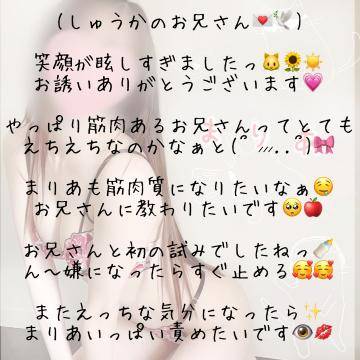 (しゅうかのお兄さん💌🕊️)
笑顔が眩しすぎましたっ🐱🌻☀️
お誘いありがとうございます💗
やっぱり筋肉あるお兄さんってとても
えちえちなのかなぁと(˶ ᷇𖥦 ᷆ ˵)🎀
まりあも筋肉質になりたいなぁ🤤
お兄さんに教わりたいです🥺🍎
お兄さんと初の試みでしたねっ🍼
ん〜嫌になったらすぐ止める🥰🥰
またえっちな気分になったら✨
まりあいっぱい責めたいです👁💋